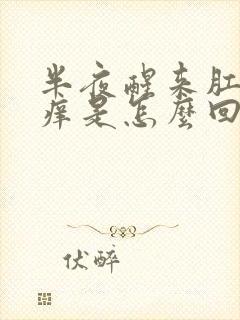 半夜醒来肛
痒是怎麼回
伏醉